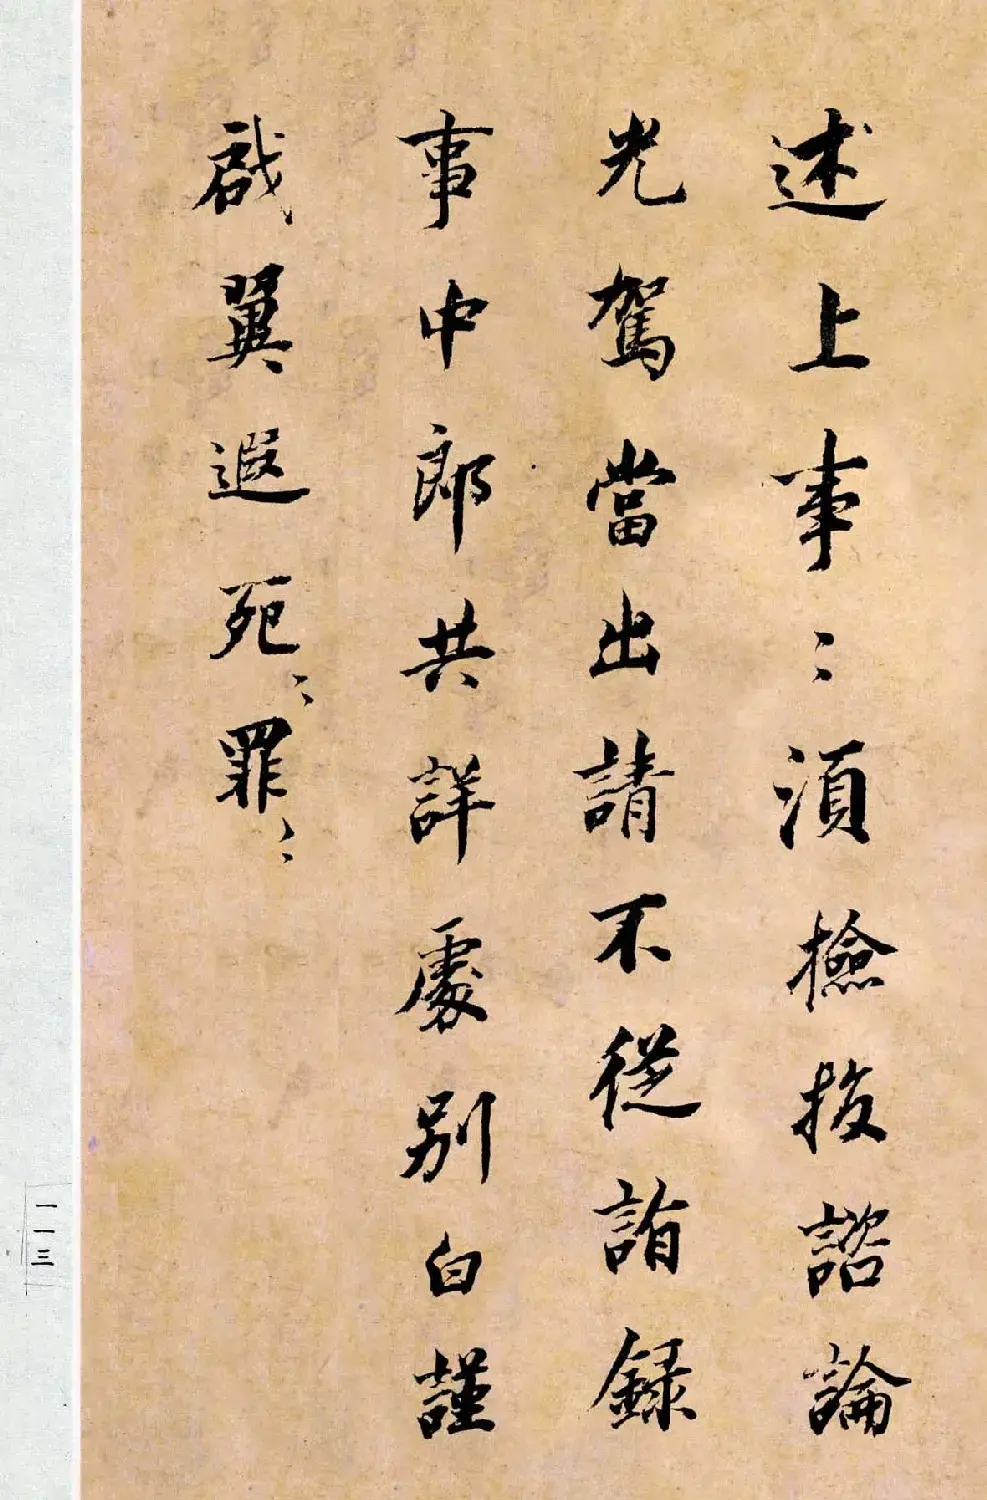 述上事〻須檢拔諮論
光駕當出請不從詣錄
事中郎共詳處別白謹
啟翼遐死〻罪〻
一一三